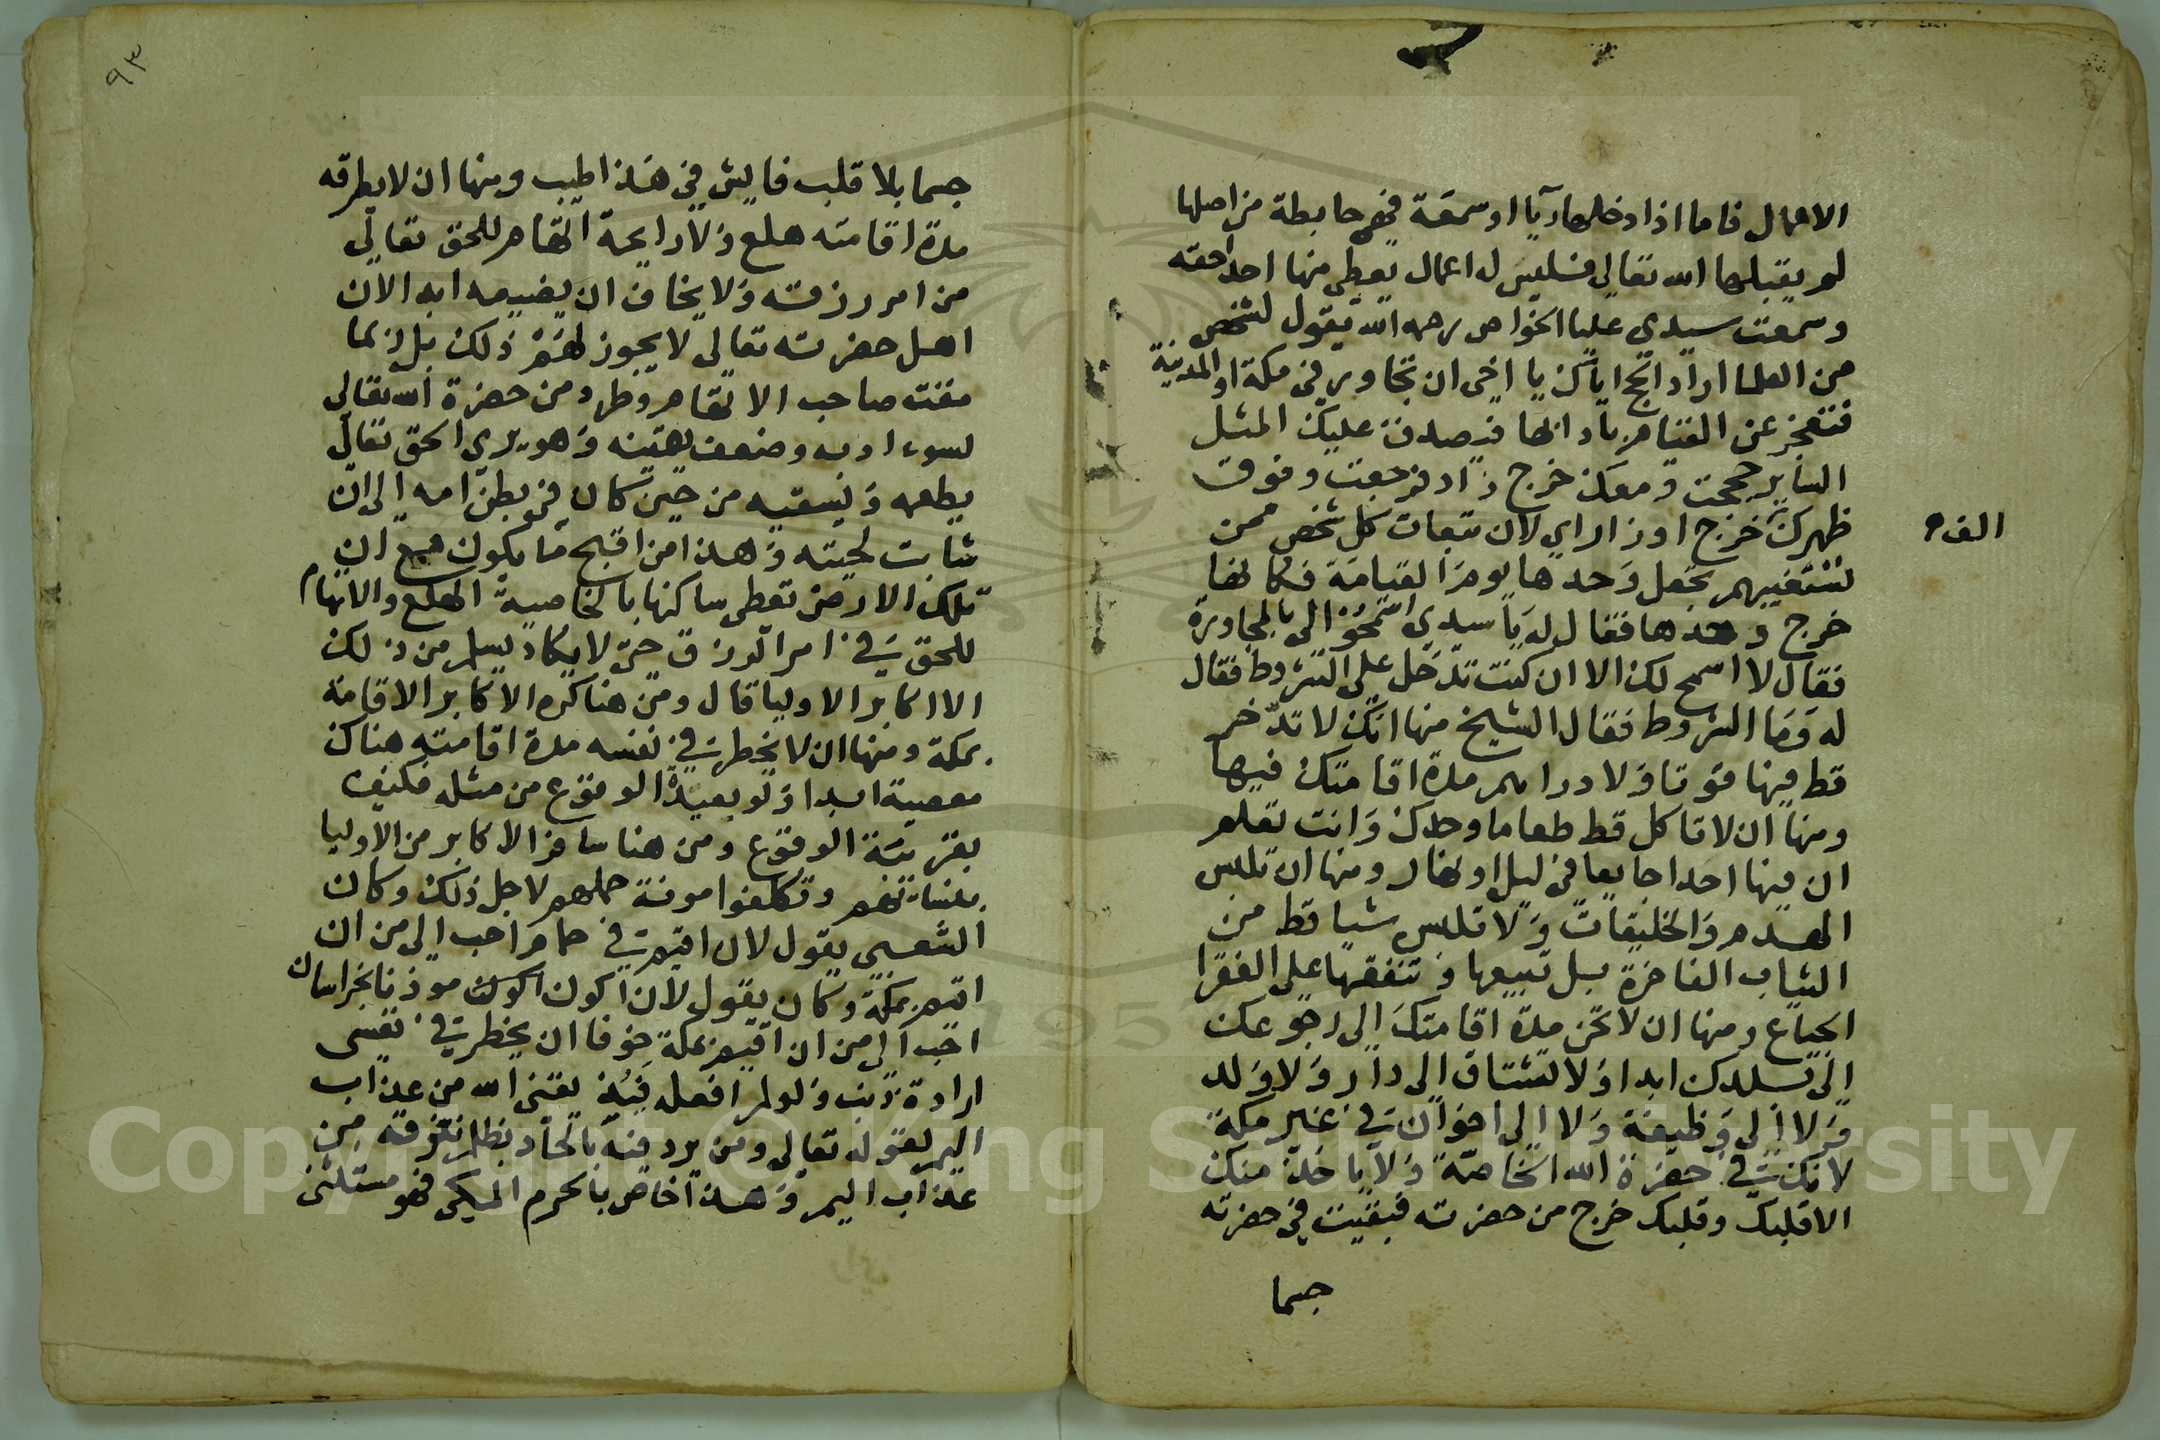 الاعمال فاما اذا دخلها ريآا او سمعة فهي حابطة من اصلها
لم يقبلها الله تعالي فليس له اعمال يعطي منها احد حقه
وسمعت سيدي عليا الخواص رحمه الله يقول لشخص
من العلما اراد الحج اياك يا اخي ان تجاور في مكة او المدينة
فتعجز عن القيام بادابها فيصدق عليك المثل
الساير حججت ومعك خرج زاد فرجعت وفوق
ظهرك خرج اوزار اي لان تبعات كل شخص ممن
تستغيبهم تجعل وحدها يوم القيامة فكانها
خرج وحدها فقال له يا سيدي اتسمحوا لي بالمجاورة
فقال لا اسمح لك الا ان كنت تدخل علي الشروط فقال
له وما الشروط فقال الشيخ منها انك لا تدخر
قط فيها قوتا ولا دراهم مدة اقامتك فيها
ومنها ان لا تاكل قط طعاما وحدك وانت تعلم
ان فيها احدا جايعا في ليل او نهار ومنها ان تلبس
الهدم والخليقات ولا تلبس شيا قط من
الثياب الفاخرة بل تبيعها وتنفقها علي الفقرا
الجياع ومنها ان لا تحن مدة اقامتك الي رجوعك
الي بلدك ابدا ولا تشتاق الي دار ولا ولد
ولا الي وظيفة ولا الي اخوان في غير مكة
لانك في حضرة الله الخاصة ولا ياخذ منك
الا قلبك وقلبك خرج من حضرته فبقيت في حضرته
جسما
الف
٩٣
جسما بلا قلب فايش في هذا طيب ومنها ان لا يطرقه
مدة اقامته هلع ولا رايحة اتهام للحق تعالي
من امر رزقه ولا يخاف ان يضيعه ابدا لان
اهل حضرته تعالي لا يجوز لهم ذلك بل ربما
مقت صاحب الاتهام وطرد من حضرة الله تعالي
لسوء ادبه وضعف يقينه وهو يري الحق تعالي
يطعمه ويسقيه من حين كان في بطن امه الي ان
شابت لحيته وهذا من اقبح ما يكون مع ان
تلك الارض تعطي ساكنها بالخاصية الهلع والاتهام
للحق في امر الرزق حتي لا يكاد يسلم من ذلك
الا اكابر الاوليا قال ومن هنا كره الاكابر الاقامة
بمكة ومنها ان لا يخطر في نفسه مدة اقامته هناك
معصية ابدا ولو بعيدة الوقوع من مثله فكيف
بقريبة الوقوع ومن هنا سافر الاكابر من الاوليا
بنسائهم وتكلفوا مونة حملهم لاجل ذلك وكان
الشعبي يقول لان اقيم في حمام احب الي من ان
اقيم بمكة وكان يقول لان اكون اكون موذنا بخراسان
احب الي من ان اقيم بمكة خوفا ان يخطر في نفسي
ارادة ذنب ولو لم افعله فيذيقني الله من عذاب
اليم لقوله تعالي ومن يرد فيه بالحاد بظلم نذقه من
عذاب اليم وهذا خاص بالحرم المكي فهو مستثني